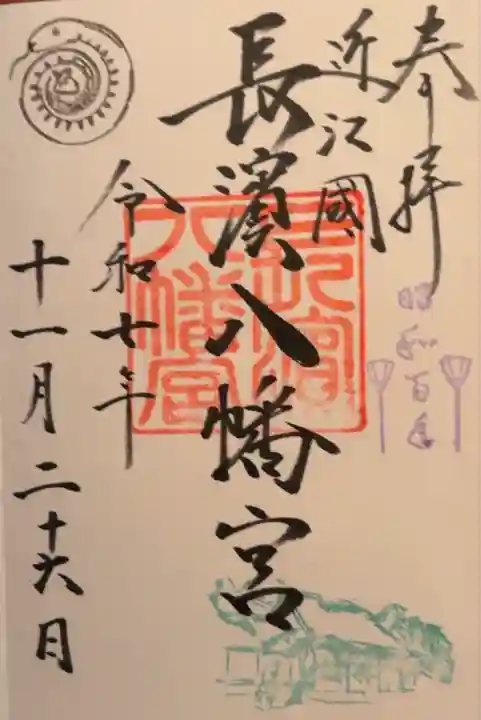 奉拝
近江國
長濱八幡宮
長濱八幡宮
昭和百年
令和七年
十一月二十六日